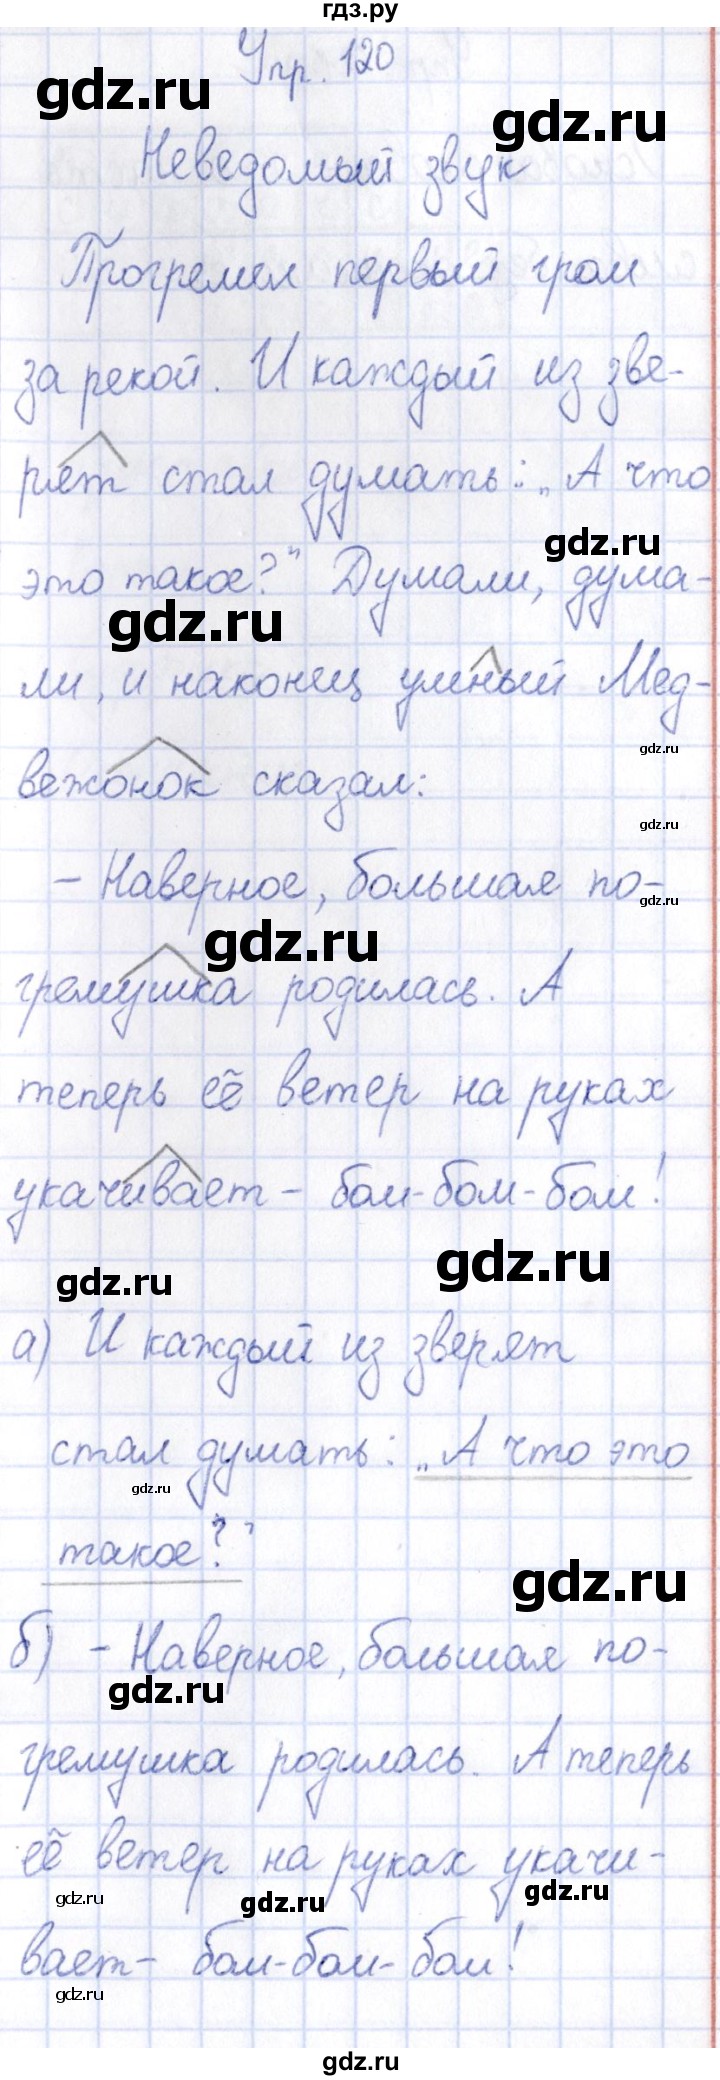 гдз.ру
Упр. 120
gdz.ru
gdz.ru
Неведомый звук
Прогремел первый гром
за рекой. И каждый из зве-
рят стал думать: „А что
gdz.ru
это такое?" Думали, дума-
gdz.ru
ли, и наконец умный Мед-
gdz.ru
вежонок сказал:
gdz.ru
- Наверное, большая по-
gdz.ru
gdz.ru
гремушка родилась. А
теперь её ветер на руках
укачивает - бом-бом-бом!
gdz.ru
gdz.ru
а) И каждый из зверят
стал думать: „А что это
gdz.ru
такое?"
gdz.ru
б) - Наверное, большая по-
gdz.ru
гремушка родилась. А теперь
её ветер на руках укачи-
gdz.ru
gdz.ru
gdz.ru
вает - бом-бом-бом!
gdz.ru
gdz.ru